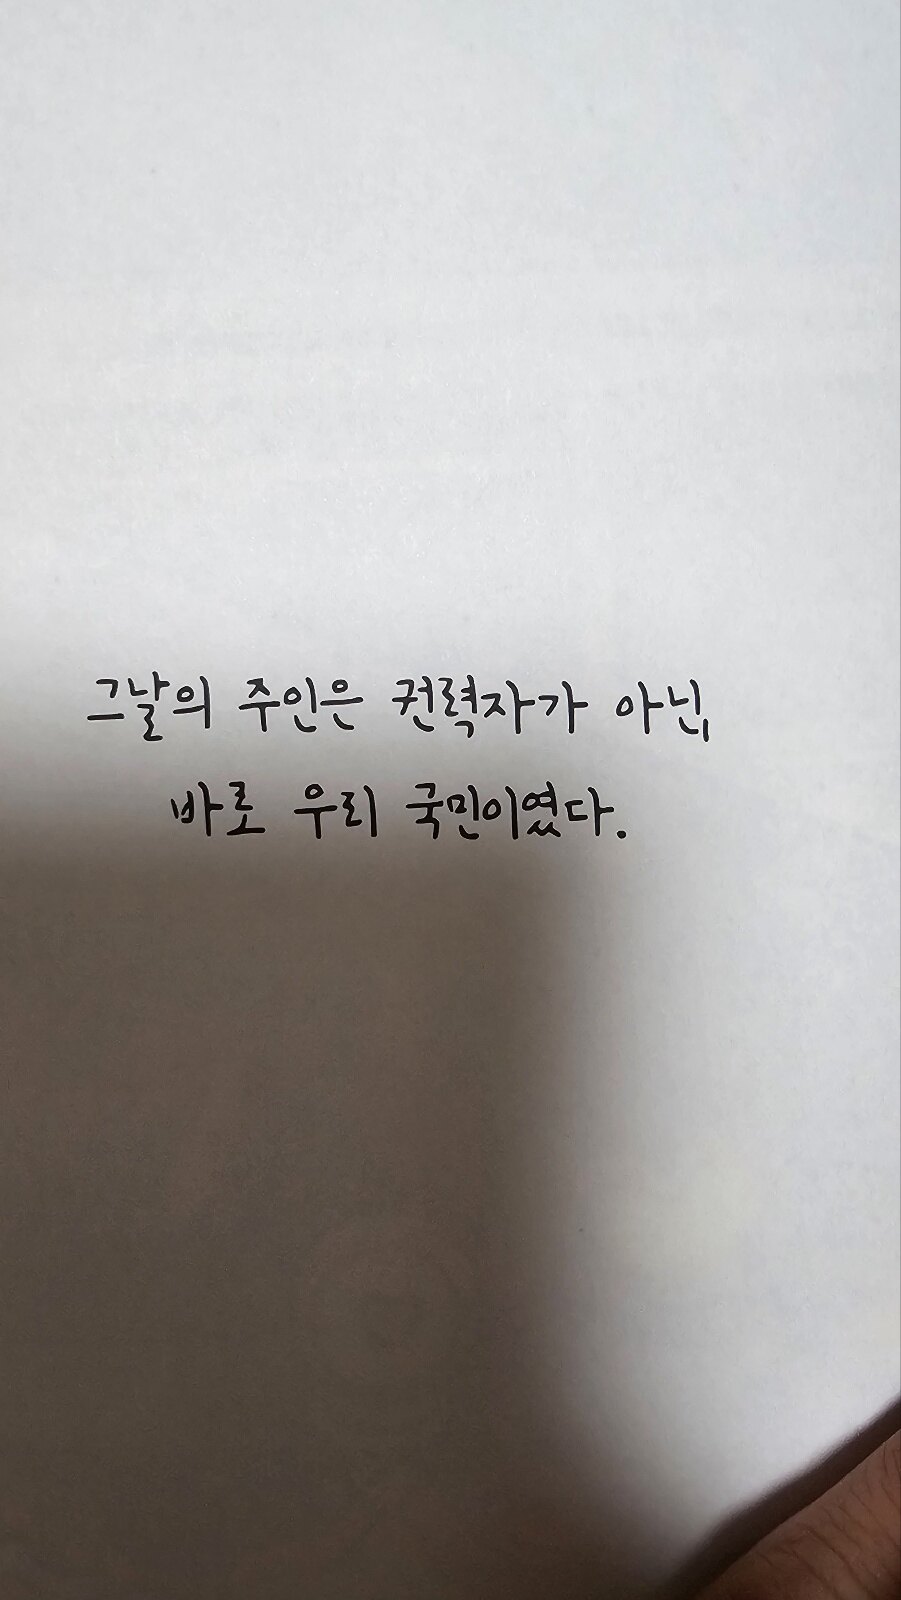 그날의 주인은 권력자가 아닌,
바로 우리 국민이였다.